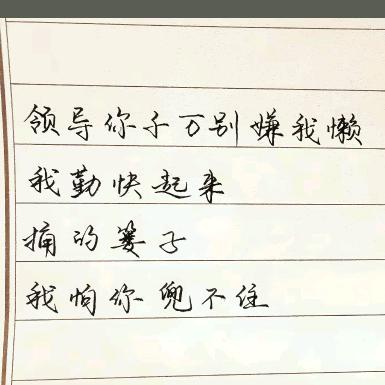 领导你千万别嫌我懒
我勤快起来
捅的篓子
我怕你兜不住